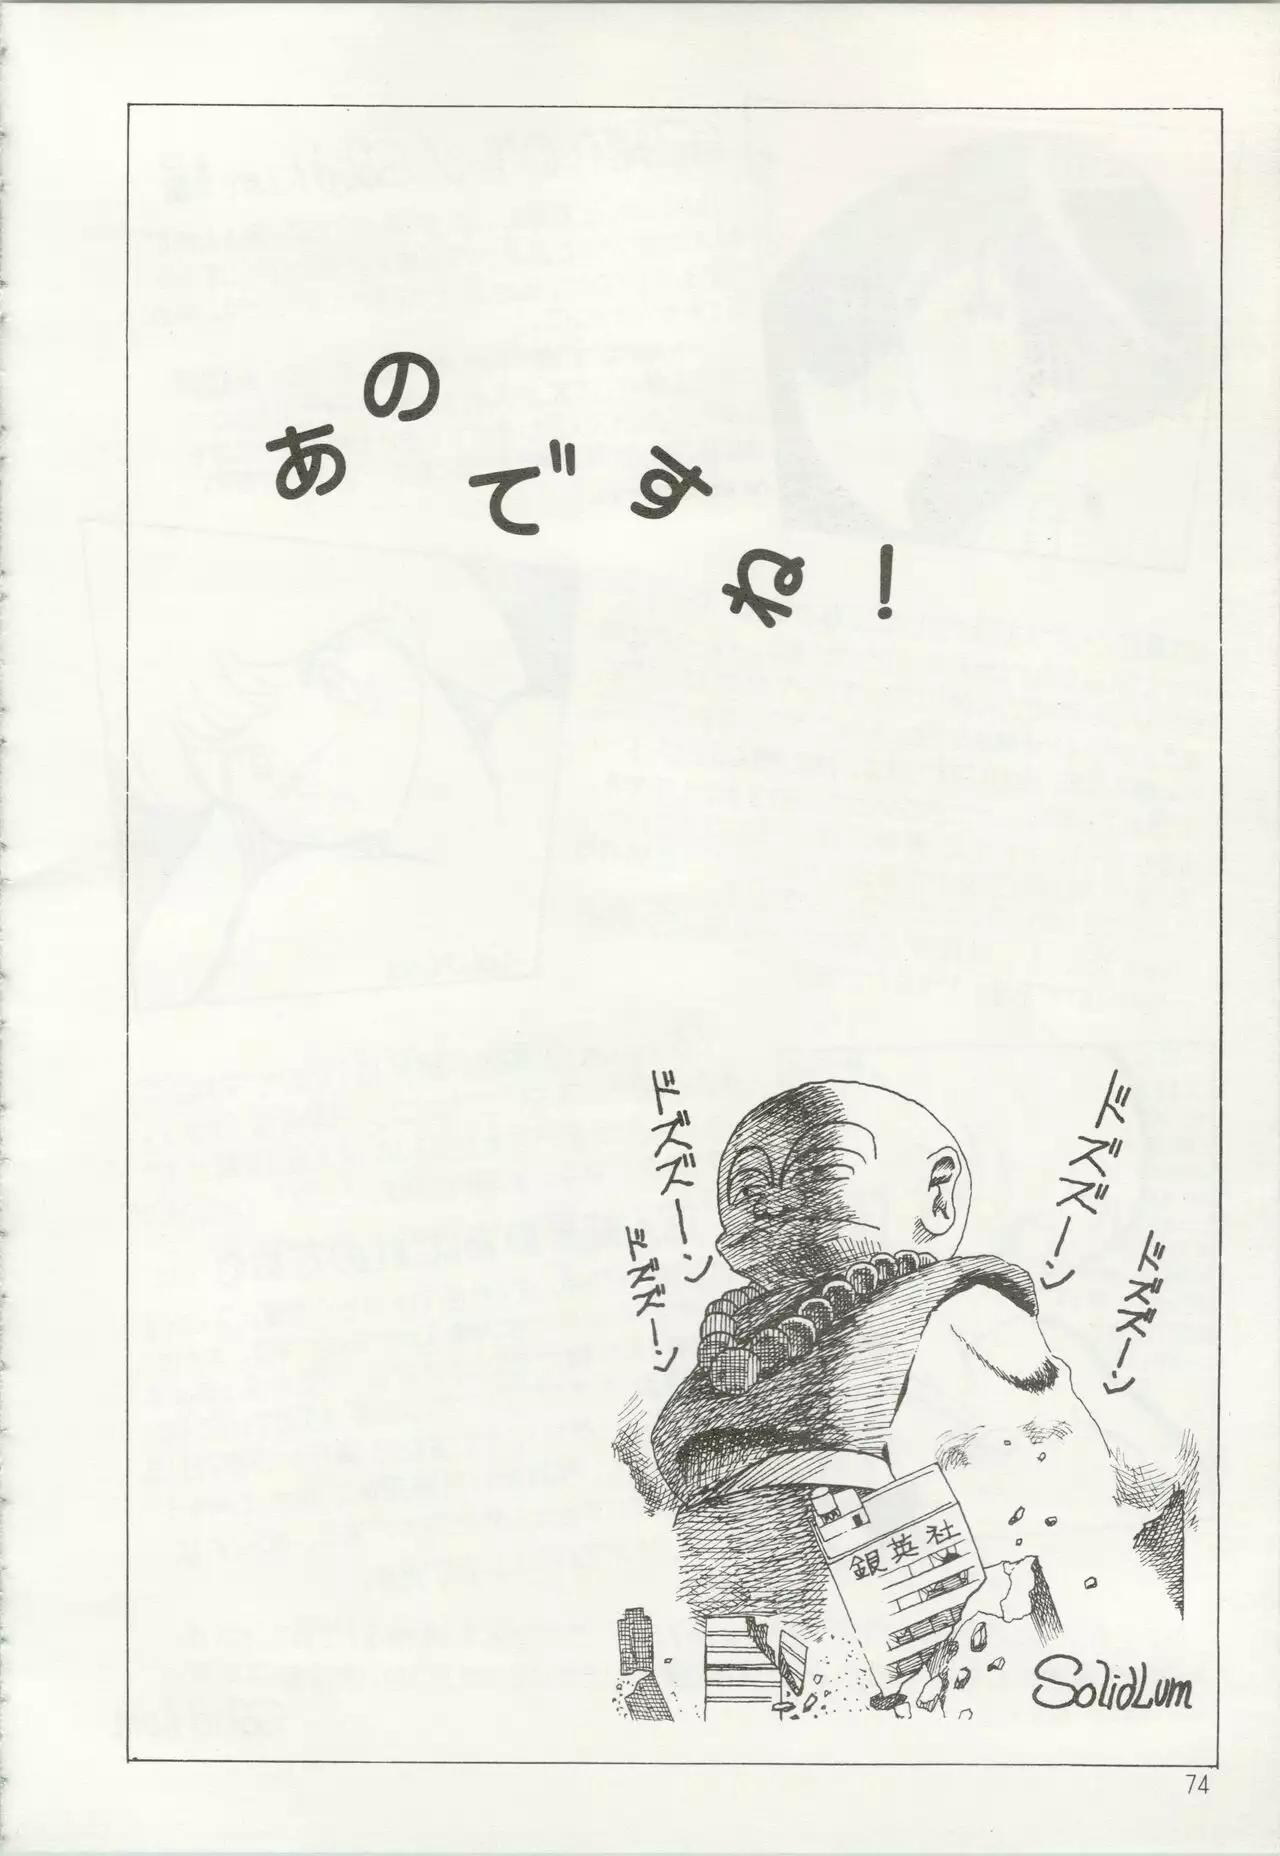 あのですね!
ドズズーン
ドズズーン
ドズズーン
ドズズーン
銀英社
SolidLum
74